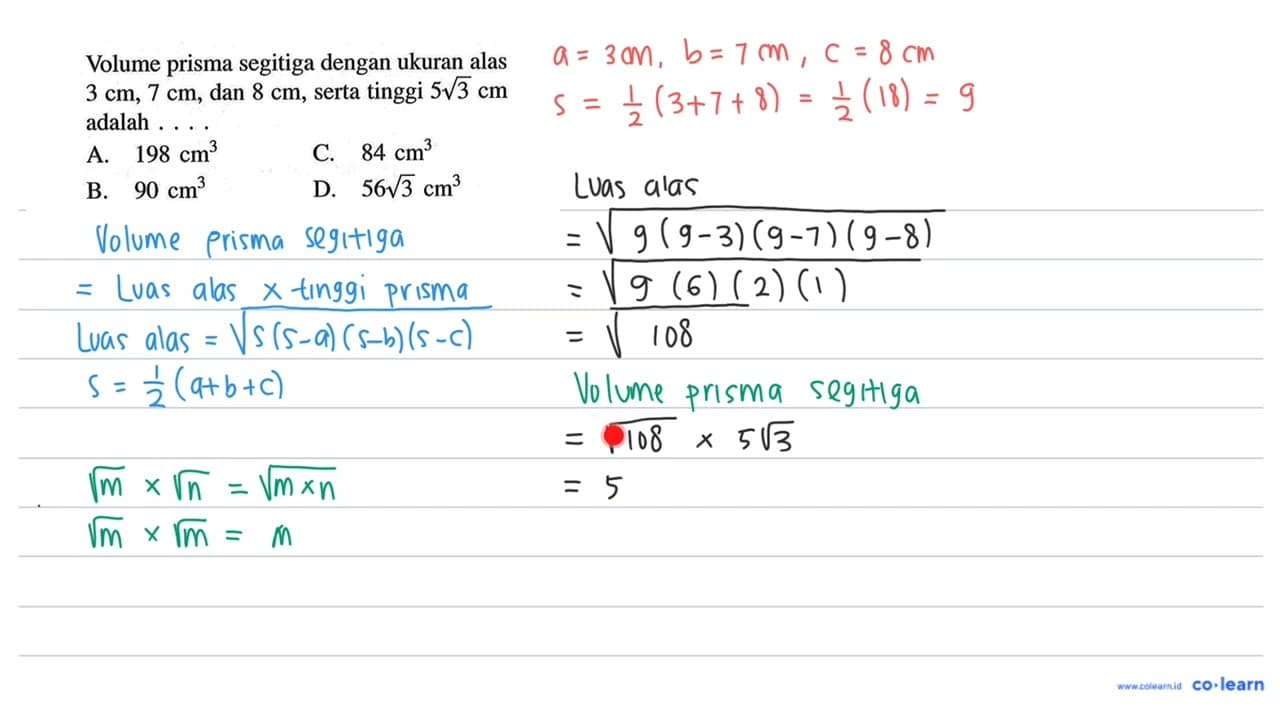 Volume prisma segitiga dengan ukuran alas
3 cm, 7 cm, dan 8 cm, serta tinggi 5√3 cm
adalah . . . .
A. 198 cm³ C. 84 cm³
B. 90 cm³ D. 56√3 cm³
Volume prisma segitiga
= Luas alas × tinggi prisma
Luas alas = √s(s-a)(s-b)(s-c)
s = 1/2 (a+b+c)
√m × √n = √m×n
√m × √m = m
a = 3 cm, b = 7 cm, c = 8 cm
s = 1/2 (3+7+8) = 1/2 (18) = 9
Luas alas
= √9(9-3)(9-7)(9-8)
= √9(6)(2)(1)
= √108
Volume prisma segitiga
= √108 × 5√3
= 5
www.colearn.id co·learn